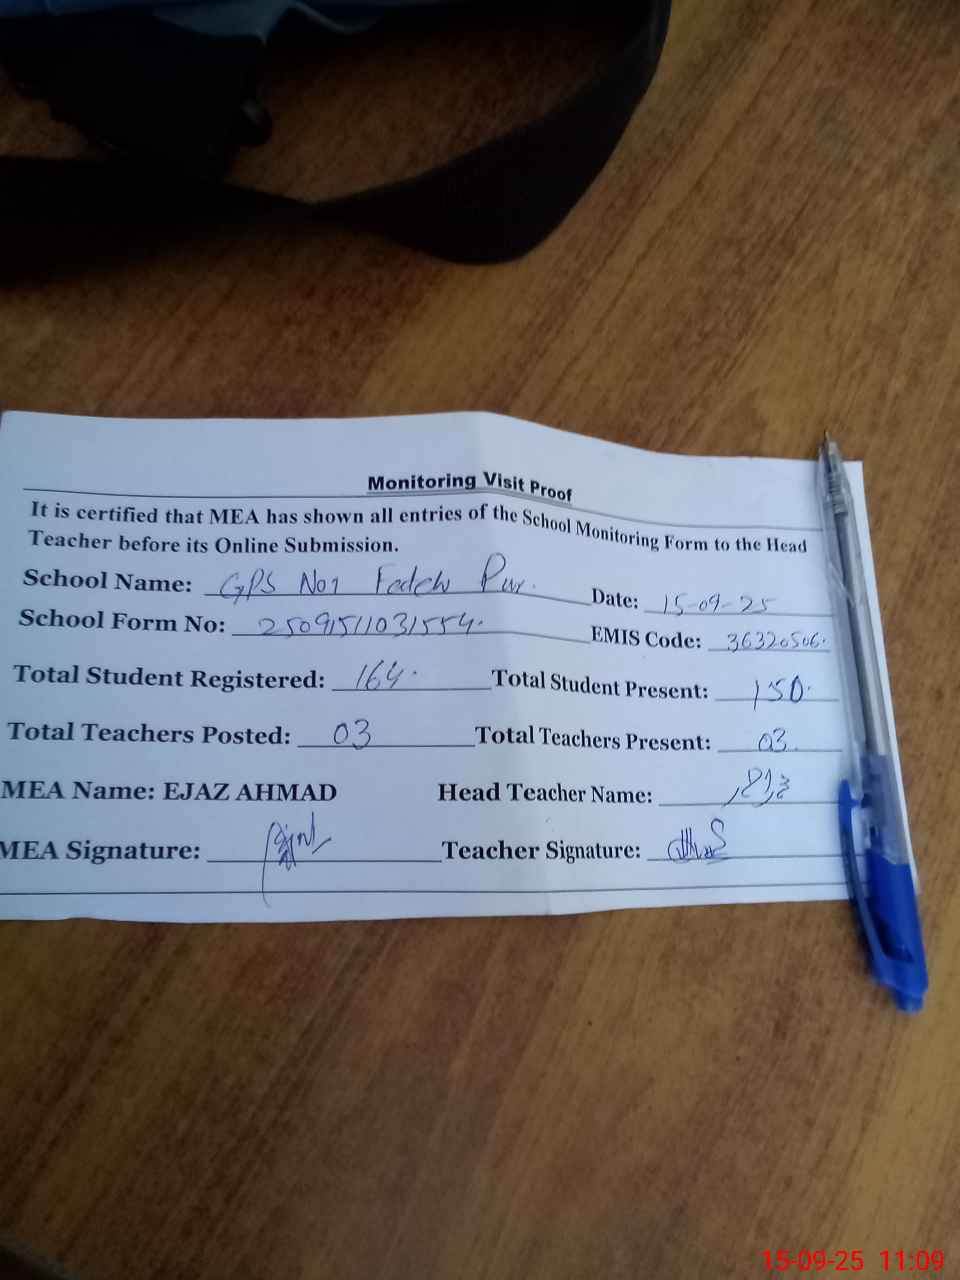 Monitoring Visit Proof
It is certified that MEA has shown all entries of the School Monitoring Form to the Head
Teacher before its Online Submission.
School Name: GPS No1 Pur. Date: 15-09-25
School Form No: 25091511031554. EMIS Code: 36320506.
Total Student Registered: 164. Total Student Present: 150.
Total Teachers Posted: 03 Total Teachers Present: 03.
MEA Name: EJAZ AHMAD Head Teacher Name:
MEA Signature: Teacher Signature:
15-09-25 11:09